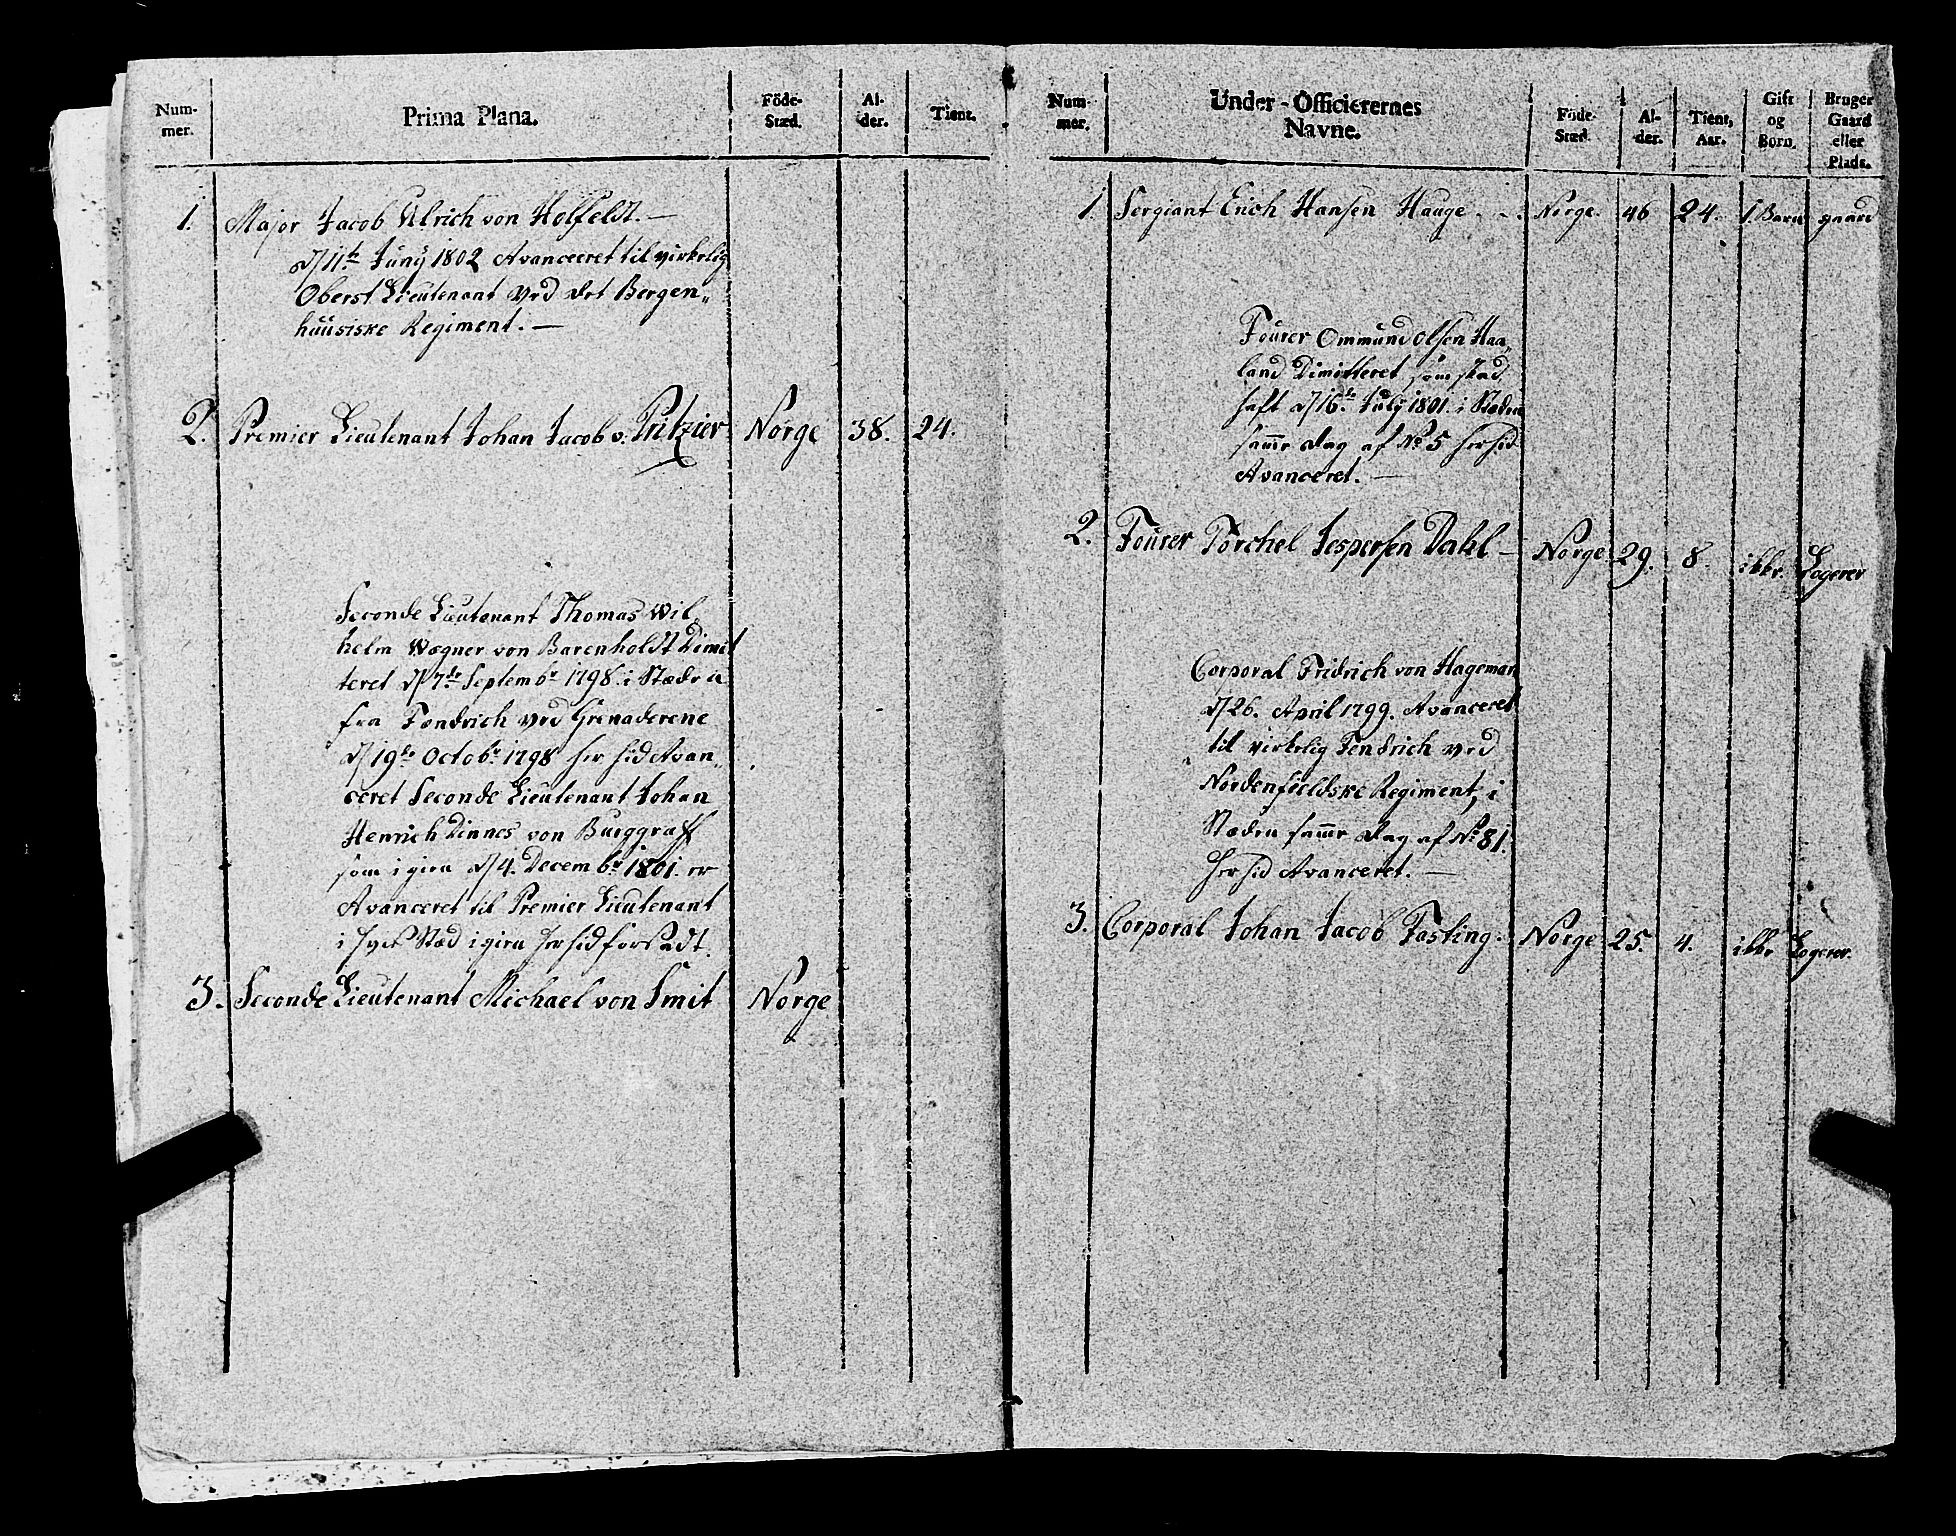 Num-
mer.
Prima Plana.
Föde-
Stæd.
Al-
der.
Tient.
1. Major Jacob Ulrich von Holfeldt. —
d/11te Juny 1802 Avanceeret til virkelig
Oberst Lieutenant ved det Bergen„
huusiske Regiment. —
2. Premier Lieutenant Johan Jacob v. Pritzier Norge 38. 24.
Seconde Lieutenant Thomas Wil„
helm Wegner von Barenholdt Dimit
teret d/7de Septembr 1798. i Stædet
fra Fendrich ved Grenaderene
d/19de Octobr 1798 her hid Avan„
ceret Seconde Lieutenant Johan
Henrich Dinnes von Burggraff
som igien d/4. Decembr 1801. er
Avanceret til Premier Lieutenant
i Stæd igien her hid forsadt.
3. Seconde Lieutenant Michael von Smit Norge
Num-
mer.
Under-Officierernes
Navne.
Föde-
Stæd.
Al-
der.
Tient,
Aar.
Gift
og
Börn.
Bruger
Gaard
eller
Plads.
1. Sergiant Erich Hansen Hauge . - . Norge. 46 24. 1. Barn gaard
Fourer Ommund Olsen Haa„
land Dimitteret som skad
haft d/16de July 1801. i Stæden
samme dag af No 5 her hid
Avanceret. —
2. Fourer Torchel Jespersen Dahl — Norge 29. 8. ikke. Logerer
Corporal Fridrich von Hageman
d/26. April 1799. Avanceret
til virkelig Fendrich ved
Nordenfieldske Regiment, i
Stæden samme dag af No 81.
her hid Avanceret. —
3. Corporal Johan Jacob Fasting. Norge 25. 4. ikke Logerer.